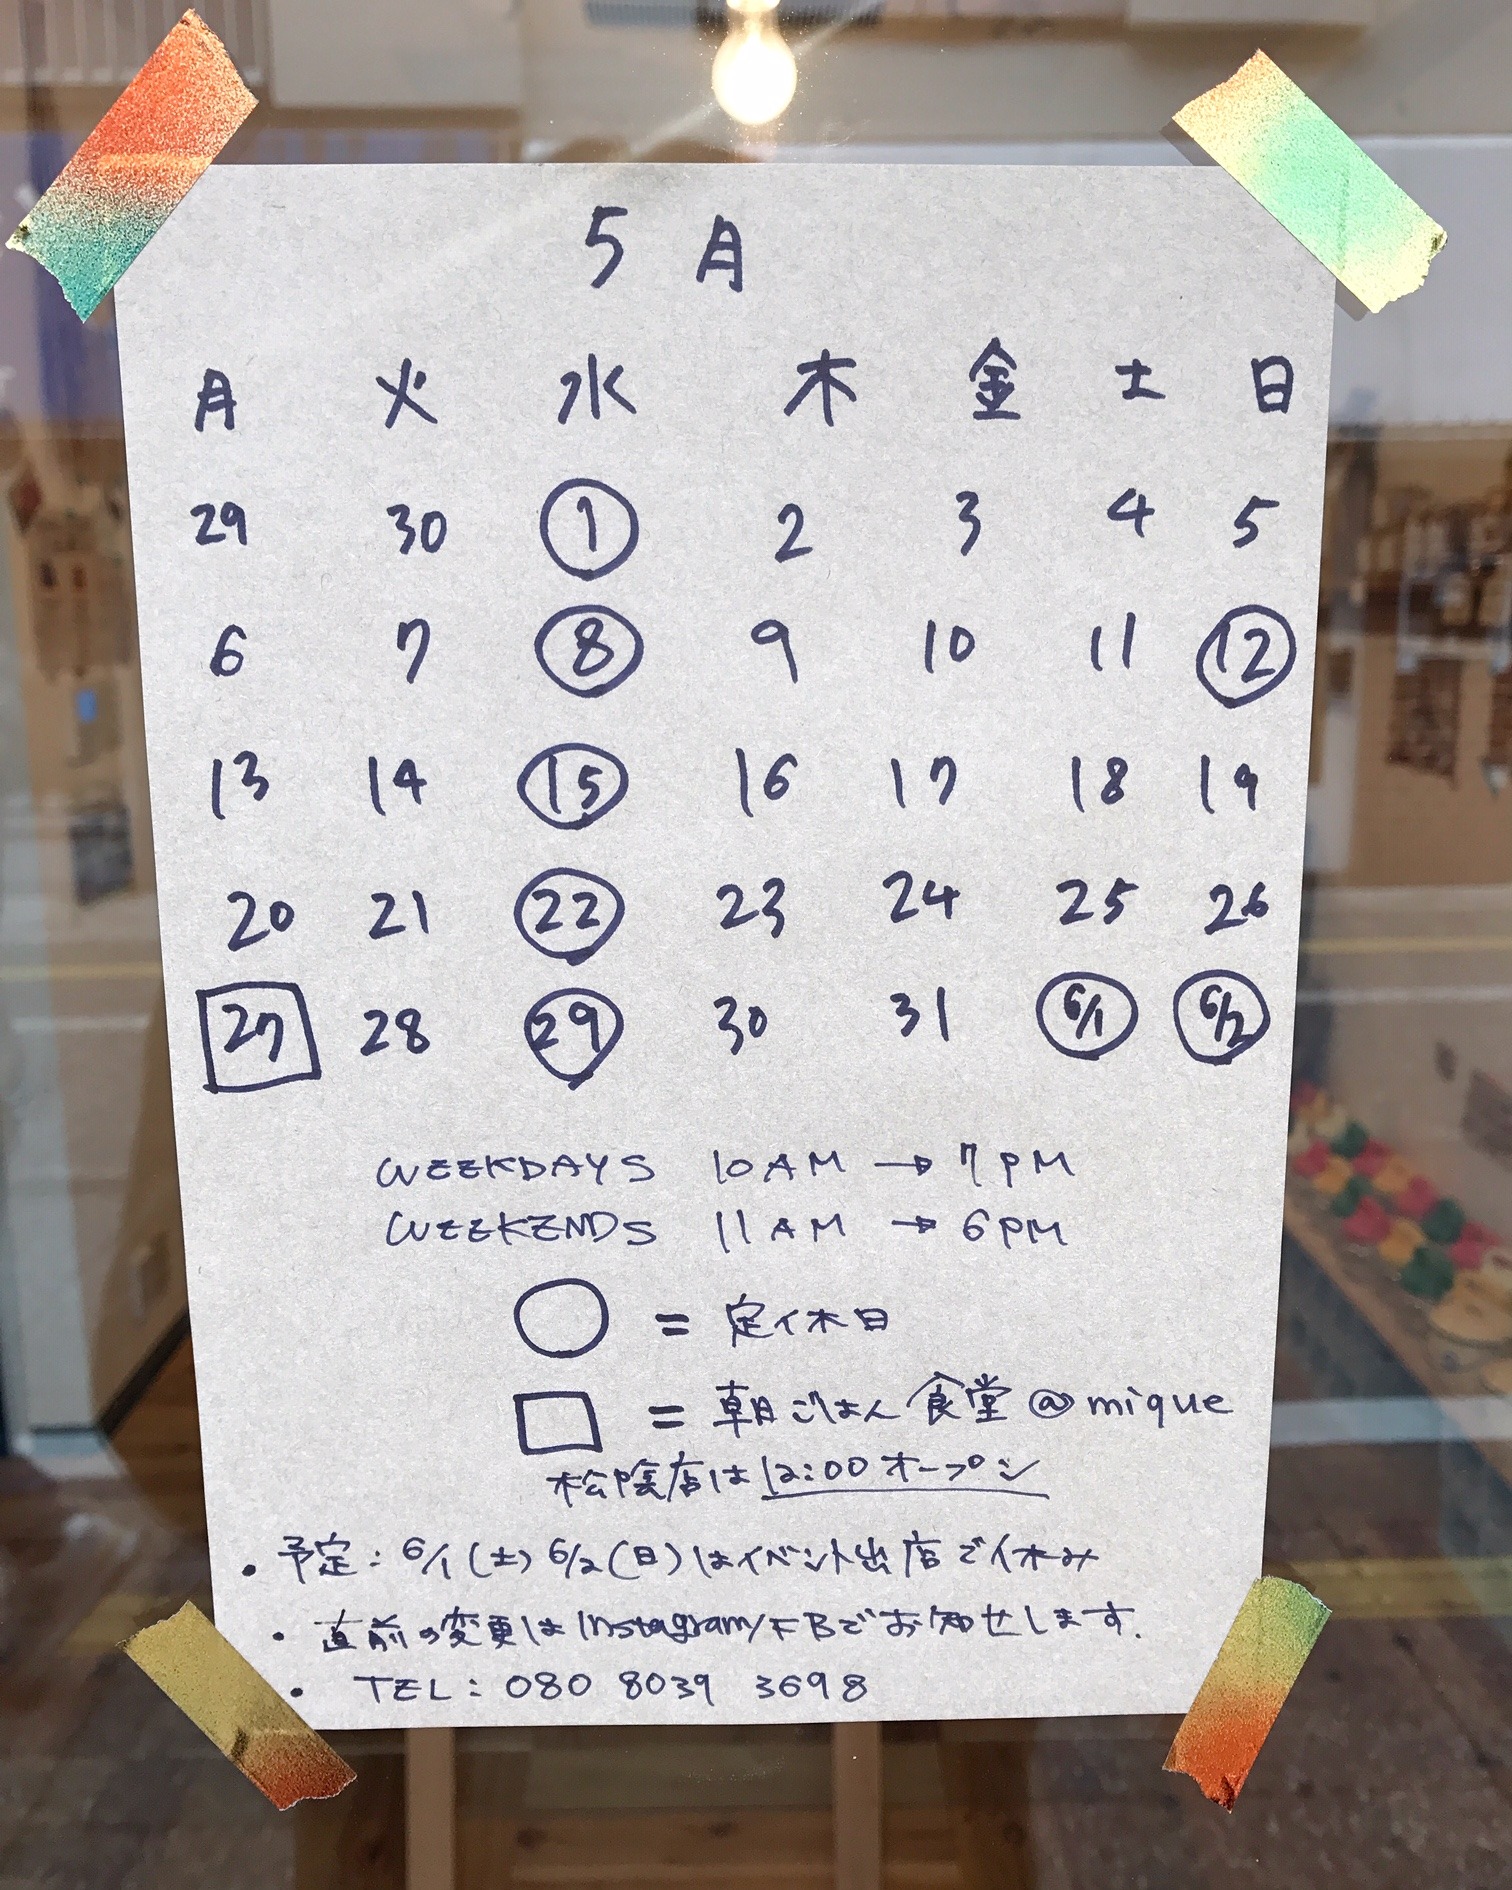 5月
月 火 水 木 金 土 日
29 30 1 2 3 4 5
6 7 8 9 10 11 12
13 14 15 16 17 18 19
20 21 22 23 24 25 26
27 28 29 30 31 6/1 6/2
WEEKDAYS 10AM → 7PM
WEEKENDS 11AM → 6PM
○ = 定休日
□ = 朝ごはん食堂@mique
松陰店は12:00オープン
・予定:6/1(土)6/2(日)はイベント出店で休み
・直前の変更はInstagram/FBでお知せします.
・TEL: 080 8039 3698